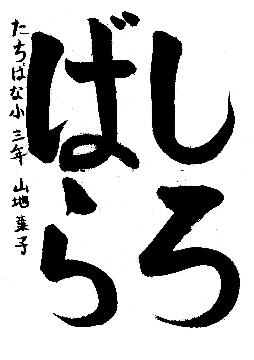 しろ
ばら
たちばな小 三年 山地 葉子